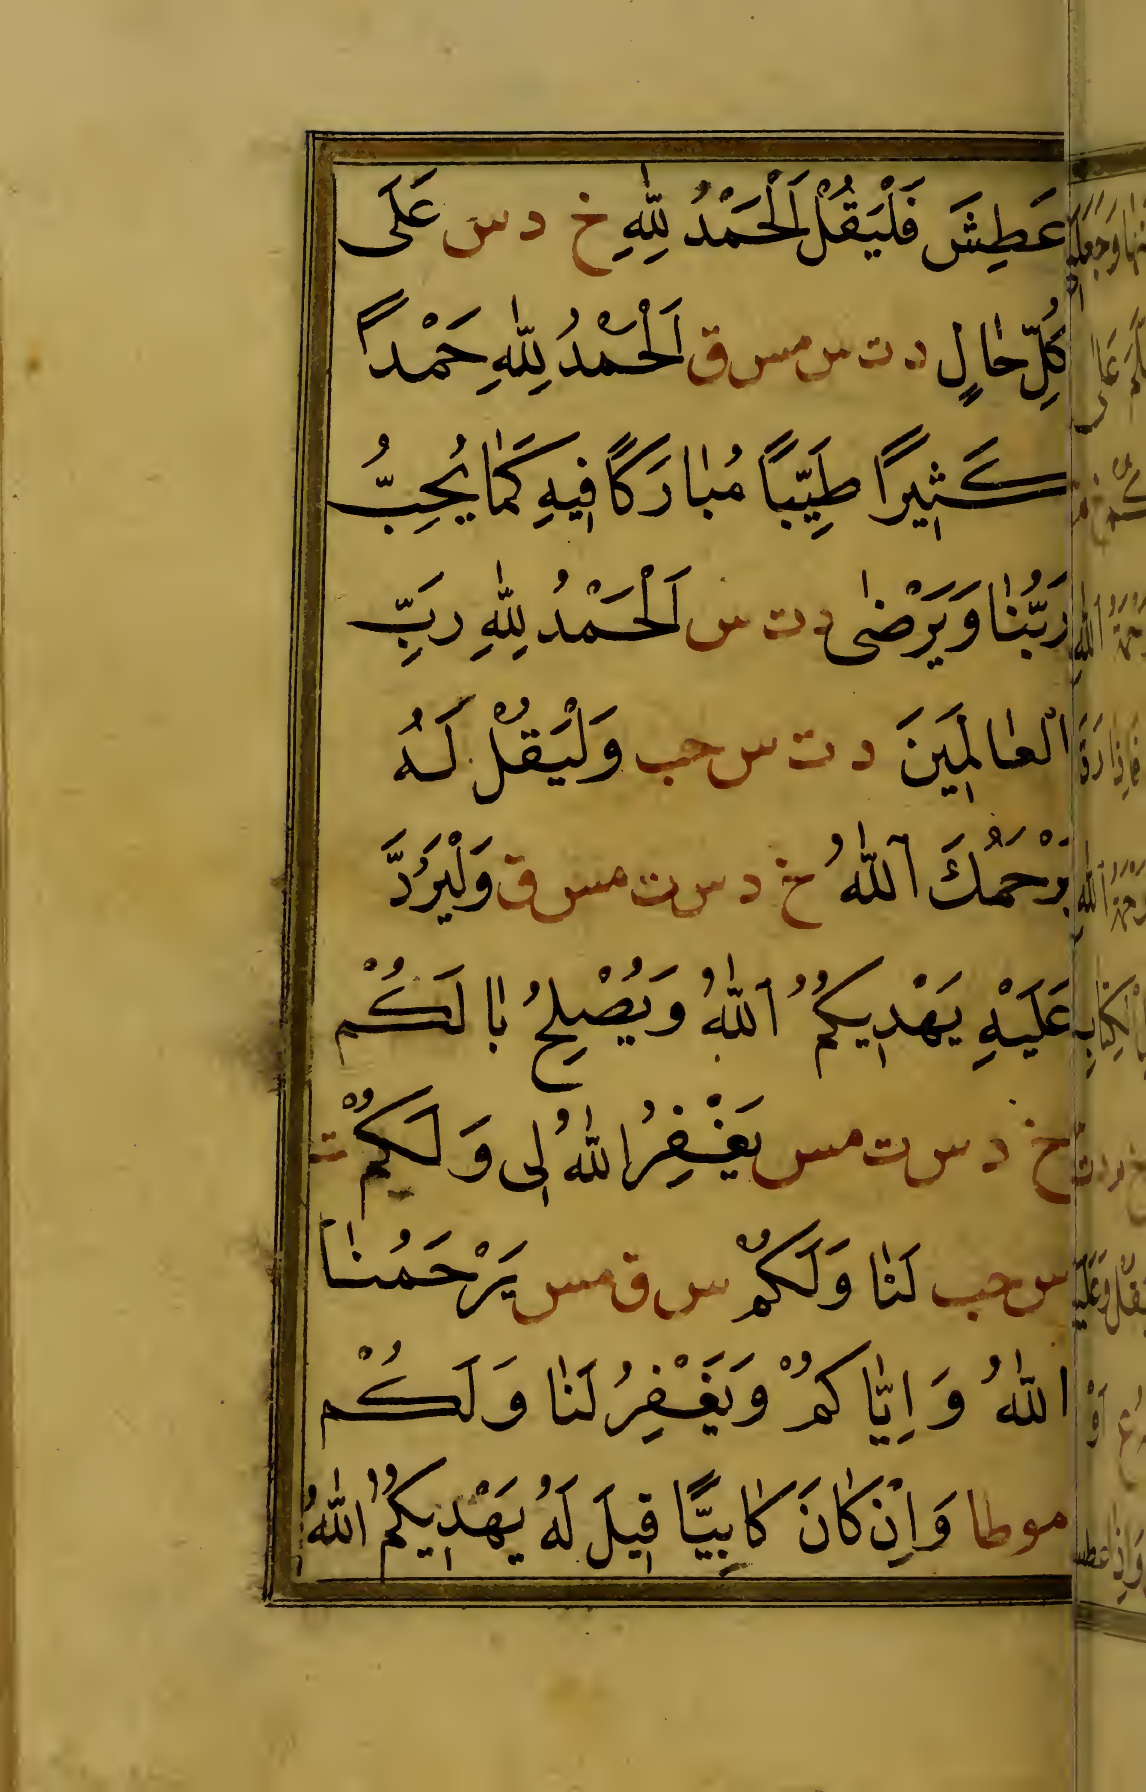 عَطِسَ فَلْيَقُلْ اَلْحَمْدُ لِلّٰهِ خ د س عَلَى
كُلِّ حَالٍ د ت س مس ق اَلْحَمْدُ لِلّٰهِ حَمْدًا
كَثِيرًا طَيِّبًا مُبَارَكًا فِيهِ كَمَا يُحِبُّ
رَبُّنَا وَيَرْضٰى د ت س اَلْحَمْدُ لِلّٰهِ رَبِّ
الْعَالَمِينَ د ت س حب وَلْيَقُلْ لَهُ
يَرْحَمُكَ اللّٰهُ خ د س ت مس ق وَلْيَرُدَّ
عَلَيْهِ يَهْدِيكُمُ اللّٰهُ وَيُصْلِحُ بَالَكُمْ
خ د س ت مس يَغْفِرُ اللّٰهُ لِى وَلَكُمْ ت
س حب لَنَا وَلَكُمْ س ق مس يَرْحَمُنَا
اللّٰهُ وَاِيَّاكُمْ وَيَغْفِرُ لَنَا وَلَكُمْ
موطا وَاِنْ كَانَ كَابِيًّا قِيلَ لَهُ يَهْدِيكُمُ اللّٰهُ